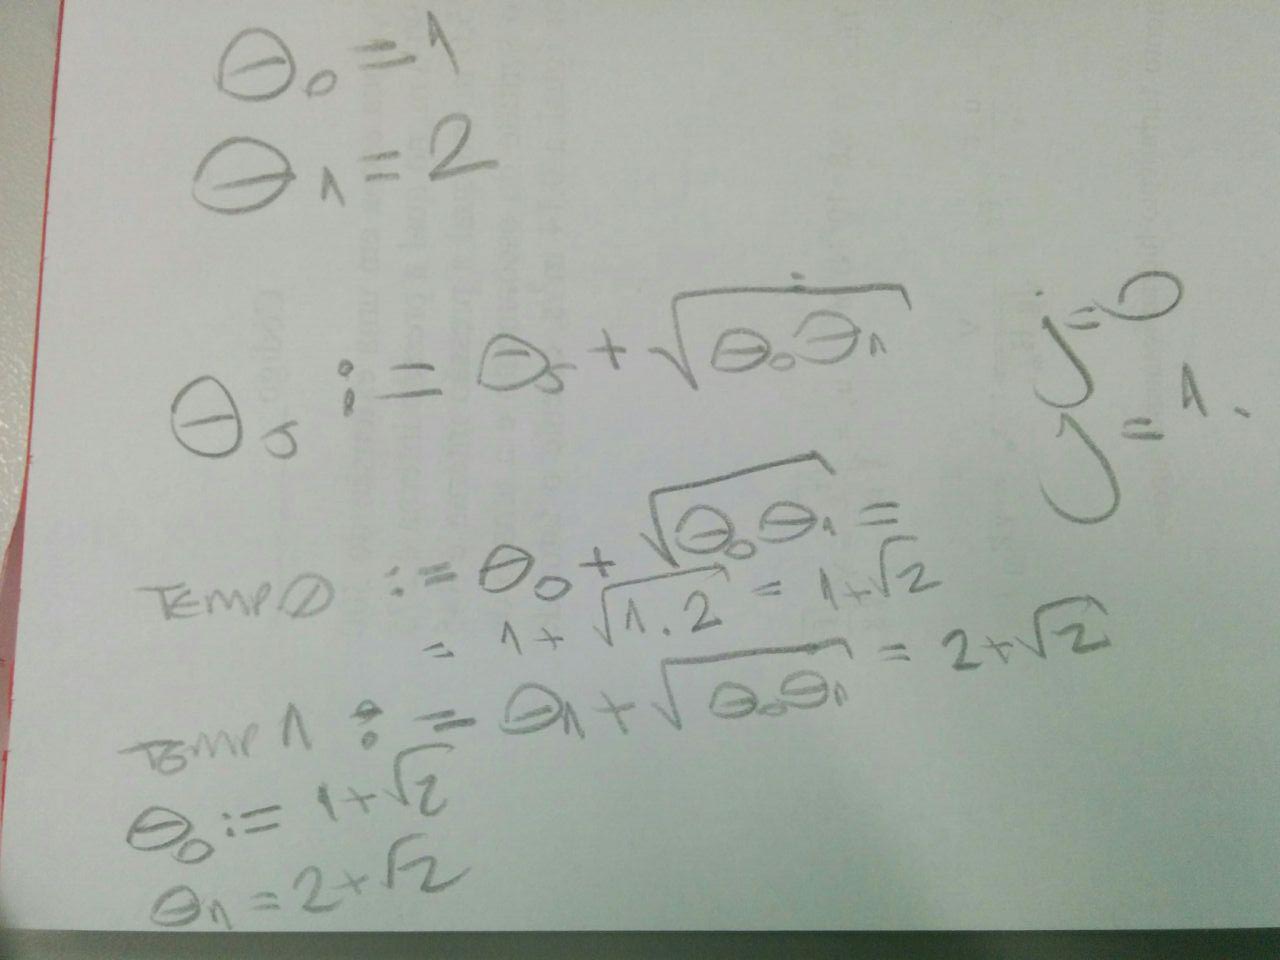 θ₀ = 1
θ₁ = 2
θⱼ := θⱼ + √(θ₀θ₁)
j = 0
j = 1.
TEMP0 := θ₀ + √(θ₀θ₁) =
= 1 + √(1.2) = 1 + √2
TEMP1 := θ₁ + √(θ₀θ₁) = 2 + √2
θ₀ := 1 + √2
θ₁ = 2 + √2